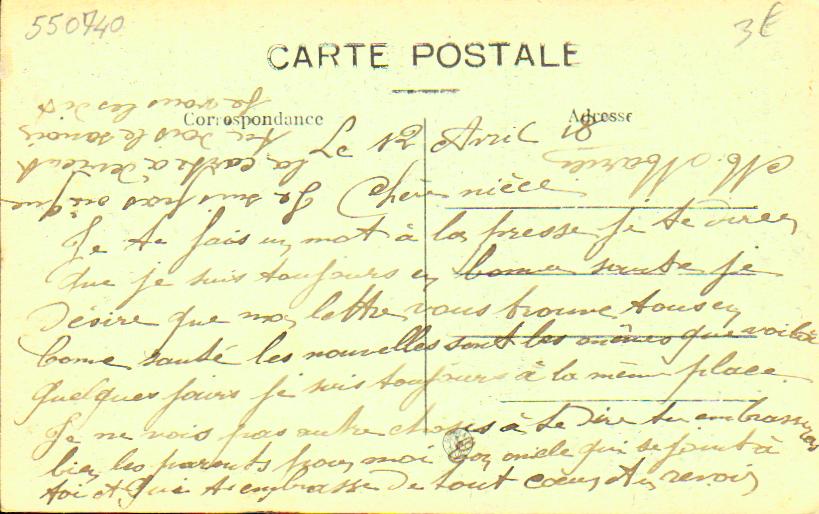 550740
3€
CARTE POSTALE
Correspondance
Adresse
Le 12 Avril 18
Chère nièce
Je te fais un mot à la presse je te direz
que je suis toujours en bonne sante je
désire que ma lettre vous trouve tous en
bonne santé les nouvelles sont les mêmes que voilà
quelques jours je suis toujours à la même place
Je ne vois pas autre choses à te dire tu embrasseras
bien les parents pour moi ton oncle qui se joint à
toi et qui t'embrasse de tout cœur et au revoir
Je suis pas où que
la carte
Je vous les dit
M. Marie